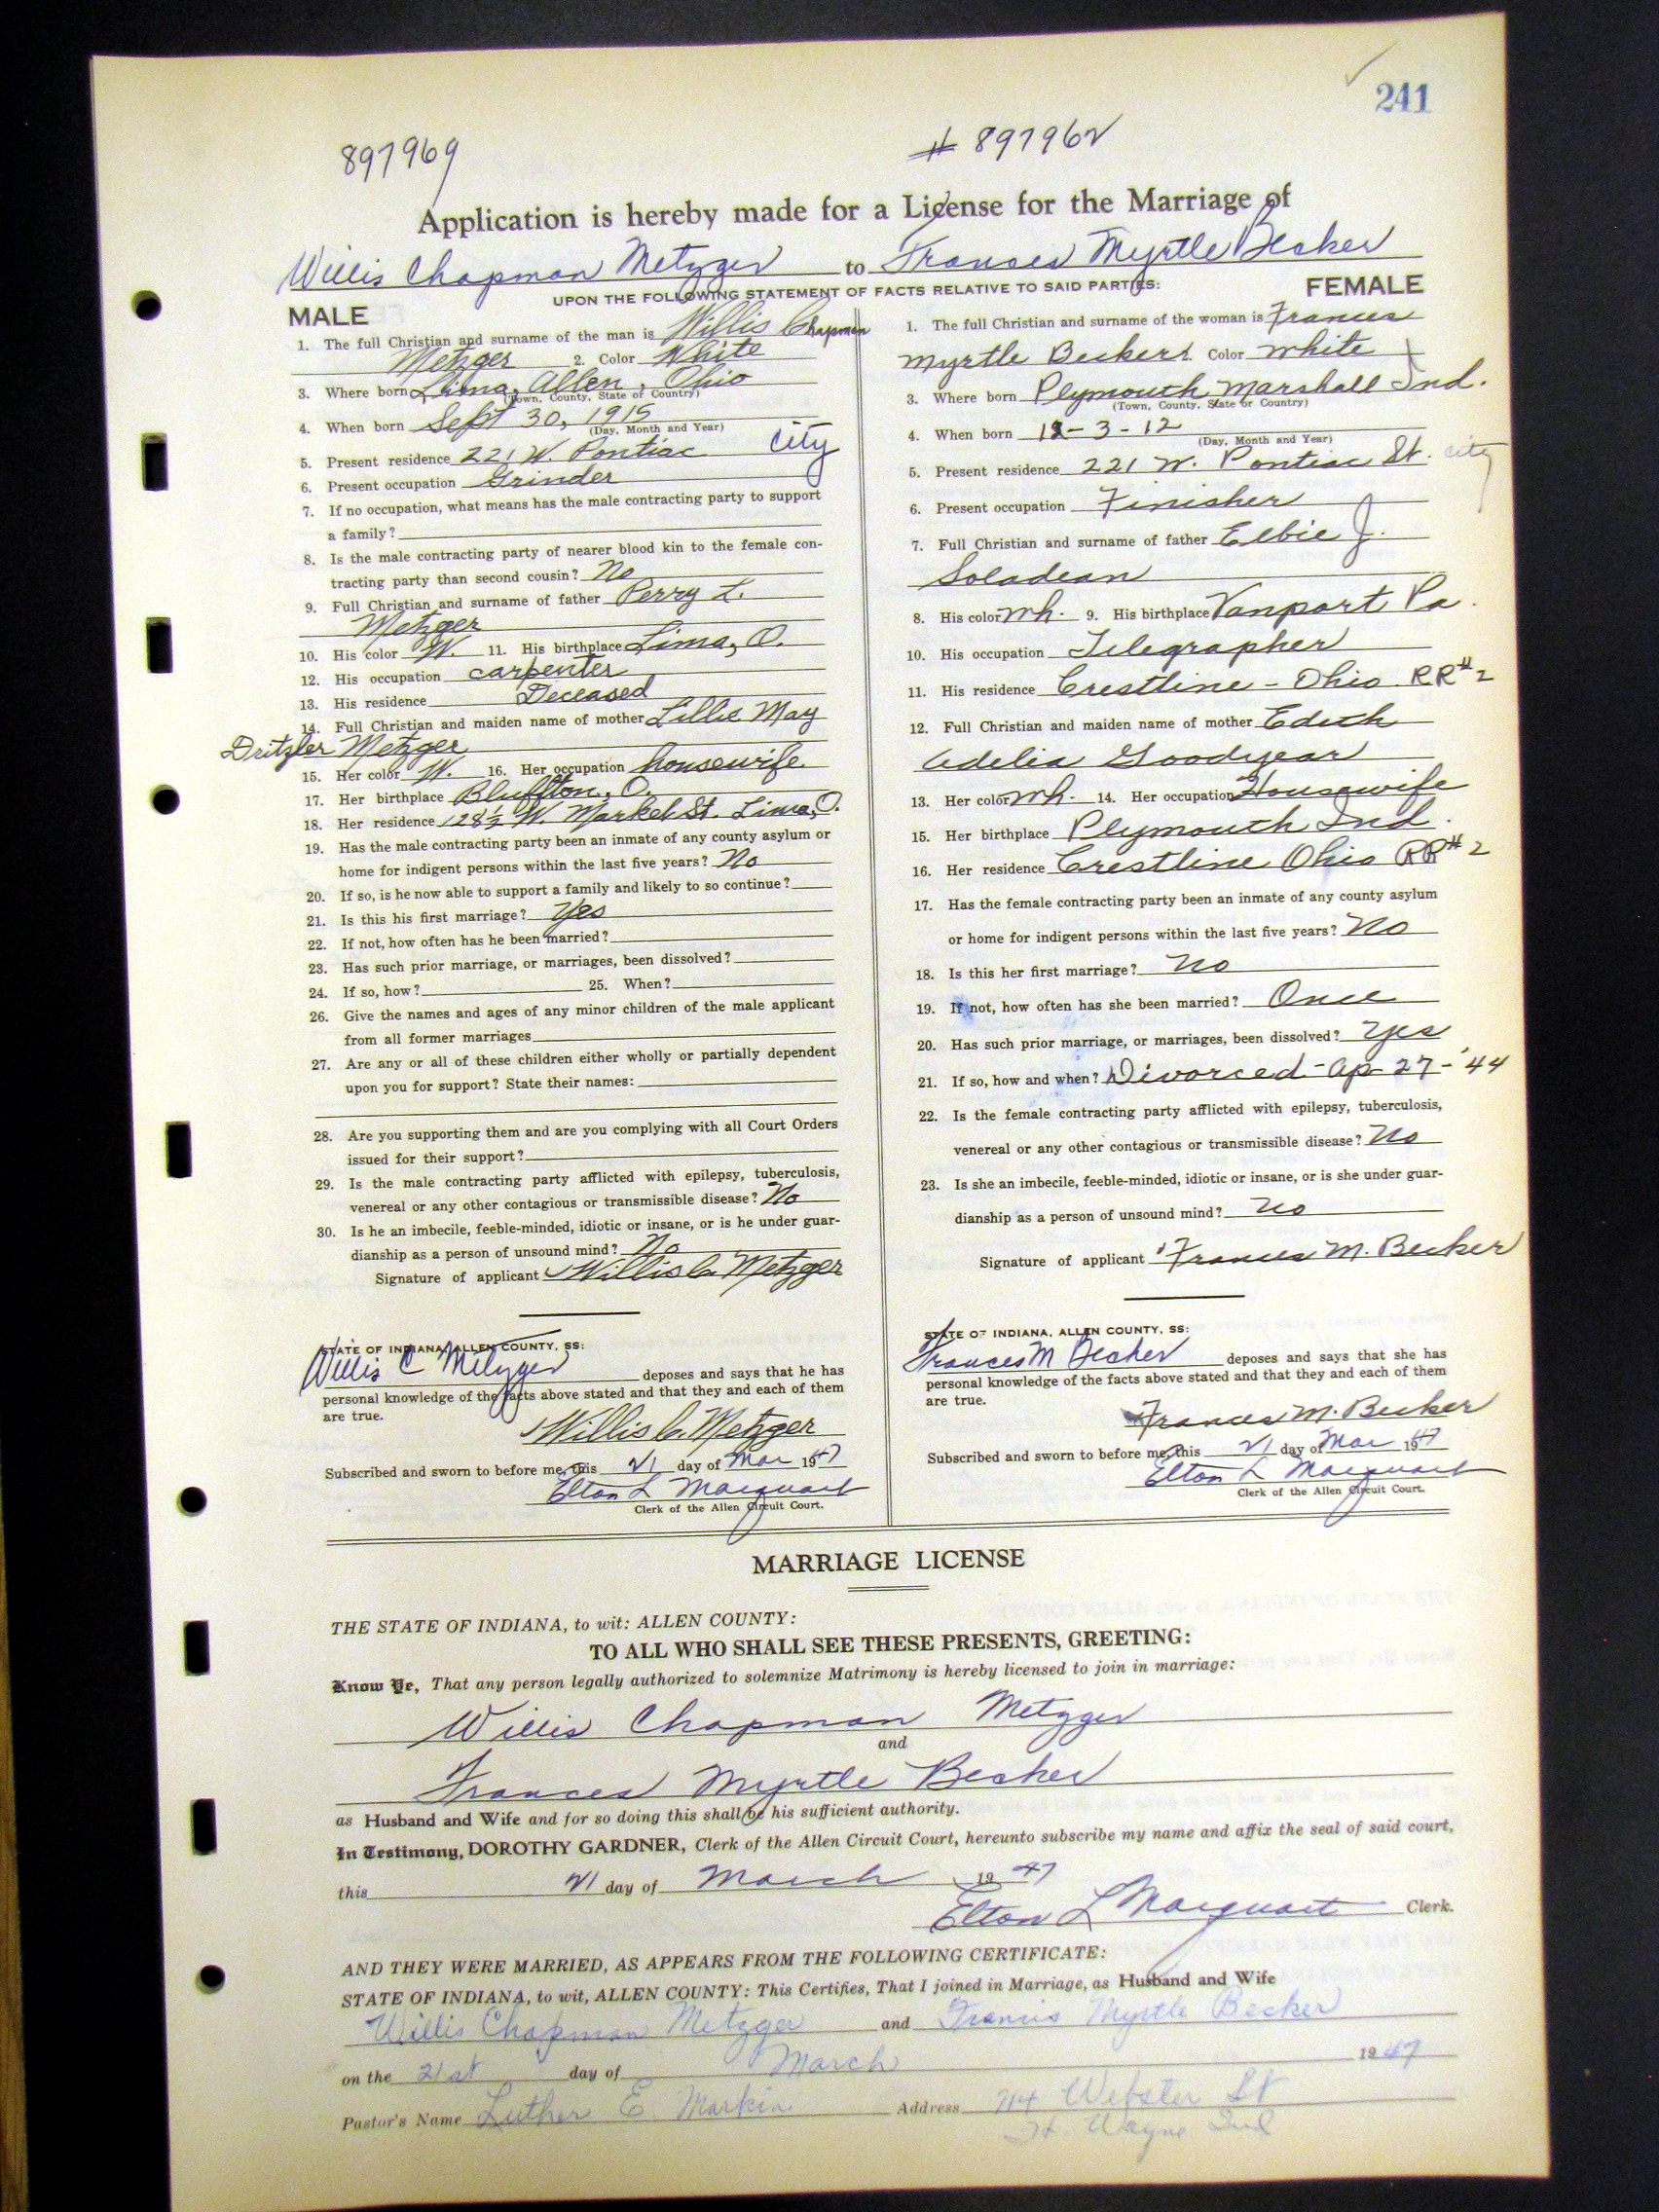 241
897969
# 897962
Application is hereby made for a License for the Marriage of
Willis Chapman Metzger to Frances Myrtle Becker
UPON THE FOLLOWING STATEMENT OF FACTS RELATIVE TO SAID PARTIES:
MALE
1. The full Christian and surname of the man is Willis Chapman
Metzger 2. Color White
3. Where born Lima, Allen, Ohio
(Town, County, State or Country)
4. When born Sept 30, 1915
(Day, Month and Year)
5. Present residence 221 W. Pontiac City
6. Present occupation Grinder
7. If no occupation, what means has the male contracting party to support
a family?
8. Is the male contracting party of nearer blood kin to the female con-
tracting party than second cousin? No
9. Full Christian and surname of father Perry L.
Metzger
10. His color W. 11. His birthplace Lima, O.
12. His occupation carpenter
13. His residence Deceased
14. Full Christian and maiden name of mother Lillie May
Dritzler Metzger
15. Her color W. 16. Her occupation housewife
17. Her birthplace Bluffton, O.
18. Her residence 128½ W. Market St. Lima, O.
19. Has the male contracting party been an inmate of any county asylum or
home for indigent persons within the last five years? No
20. If so, is he now able to support a family and likely to so continue?
21. Is this his first marriage? Yes
22. If not, how often has he been married?
23. Has such prior marriage, or marriages, been dissolved?
24. If so, how? 25. When?
26. Give the names and ages of any minor children of the male applicant
from all former marriages
27. Are any or all of these children either wholly or partially dependent
upon you for support? State their names:
28. Are you supporting them and are you complying with all Court Orders
issued for their support?
29. Is the male contracting party afflicted with epilepsy, tuberculosis,
venereal or any other contagious or transmissible disease? No
30. Is he an imbecile, feeble-minded, idiotic or insane, or is he under guar-
dianship as a person of unsound mind? No
Signature of applicant Willis C. Metzger
STATE OF INDIANA, ALLEN COUNTY, SS:
Willis C Metzger deposes and says that he has
personal knowledge of the facts above stated and that they and each of them
are true.
Willis C. Metzger
Subscribed and sworn to before me, this 21 day of Mar 1947
Elton L Marquart
Clerk of the Allen Circuit Court.
FEMALE
1. The full Christian and surname of the woman is Frances
Myrtle Becker 2. Color white
3. Where born Plymouth Marshall Ind.
(Town, County, State or Country)
4. When born 12-3-12
(Day, Month and Year)
5. Present residence 221 W. Pontiac St. city
6. Present occupation Finisher
7. Full Christian and surname of father Elbie J.
Soladean
8. His color Wh. 9. His birthplace Vanport Pa.
10. His occupation Telegrapher
11. His residence Crestline - Ohio RR#2
12. Full Christian and maiden name of mother Edith
Adelia Goodyear
13. Her color Wh. 14. Her occupation Housewife
15. Her birthplace Plymouth Ind.
16. Her residence Crestline Ohio RR#2
17. Has the female contracting party been an inmate of any county asylum
or home for indigent persons within the last five years? No
18. Is this her first marriage? No
19. If not, how often has she been married? Once
20. Has such prior marriage, or marriages, been dissolved? Yes
21. If so, how and when? Divorced - Ap 27 - '44
22. Is the female contracting party afflicted with epilepsy, tuberculosis,
venereal or any other contagious or transmissible disease? No
23. Is she an imbecile, feeble-minded, idiotic or insane, or is she under guar-
dianship as a person of unsound mind? No
Signature of applicant Frances M. Becker
STATE OF INDIANA, ALLEN COUNTY, SS:
Frances M Becker deposes and says that she has
personal knowledge of the facts above stated and that they and each of them
are true.
Frances M. Becker
Subscribed and sworn to before me, this 21 day of Mar 1947
Elton L Marquart
Clerk of the Allen Circuit Court.
MARRIAGE LICENSE
THE STATE OF INDIANA, to wit: ALLEN COUNTY:
TO ALL WHO SHALL SEE THESE PRESENTS, GREETING:
Know Ye, That any person legally authorized to solemnize Matrimony is hereby licensed to join in marriage:
Willis Chapman Metzger
and
Frances Myrtle Becker
as Husband and Wife and for so doing this shall be his sufficient authority.
In Testimony, DOROTHY GARDNER, Clerk of the Allen Circuit Court, hereunto subscribe my name and affix the seal of said court,
this 21 day of March 1947
Elton L Marquart Clerk.
AND THEY WERE MARRIED, AS APPEARS FROM THE FOLLOWING CERTIFICATE:
STATE OF INDIANA, to wit, ALLEN COUNTY: This Certifies, That I joined in Marriage, as Husband and Wife
Willis Chapman Metzger and Francis Myrtle Becker
on the 21st day of March 1947
Pastor's Name Luther E. Markin Address 714 Webster St
Ft. Wayne Ind